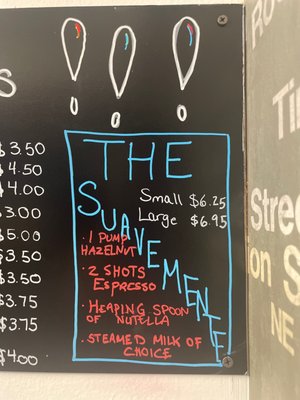 ! ! !
S
THE
SUAVEMENTE
Small $6.25
Large $6.95
· 1 PUMP
HAZELNUT
· 2 SHOTS
ESPRESSO
· HEAPING SPOON
OF NUTELLA
· STEAMED MILK OF
CHOICE
$3.50
$4.50
$4.00
$3.00
$5.00
$3.50
$3.50
$3.75
$3.75
$4.00
Stree
on S
NE